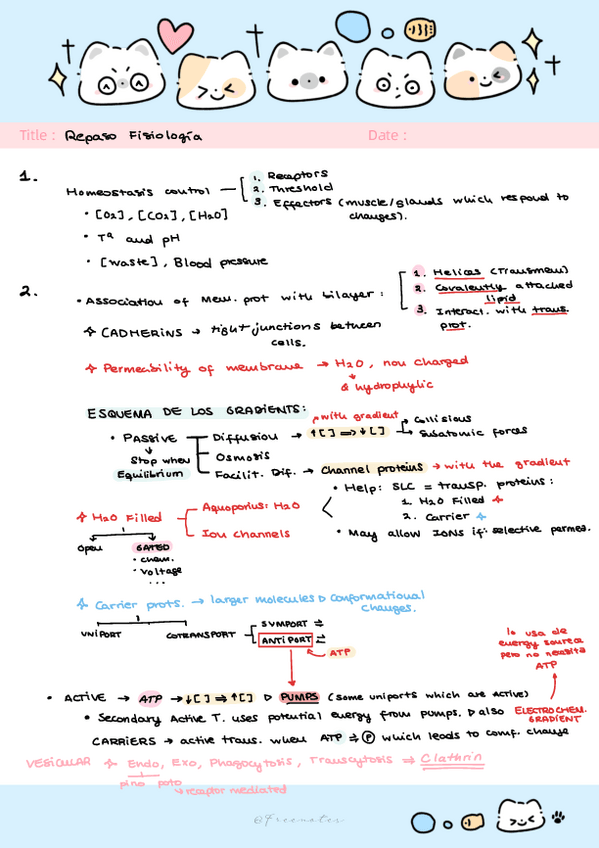 Title : Repaso Fisiología Date :
1.
Homeostasis control
1. Receptors
2. Threshold
3. Effectors (muscle/glands which respond to
changes).
• [O2], [CO2], [H2O]
• Tª and pH
• [waste], Blood pressure
2.
• Association of mem. prot with bilayer :
1. Helices (Transmem)
2. Covalently attached
lipid
3. Interact. with trans.
prot.
CADHERINS → tight junctions between
cells.
Permeability of membrane → H2O, non charged
& hydrophylic
ESQUEMA DE LOS GRADIENTS:
• PASSIVE
Stop when
Equilibrium
Diffusion → ↑[ ] ⇒ ↓[ ]
with gradient
Collisions
Subatomic forces
Osmosis
Facilit. Dif. → Channel proteins → with the gradient
• Help: SLC = transp. proteins :
1. H2O Filled
2. Carrier
• May allow IONS if: selective permea.
H2O Filled
Aquaporius: H2O
Ion channels
Open
GATED
• chem.
• Voltage
...
Carrier prots. → larger molecules ▷ Conformational
changes.
UNIPORT
COTRANSPORT
SYMPORT ⇉
ANTIPORT ⇄
ATP
lo usa de
energy source
pero no necesita
ATP
• ACTIVE → ATP → ↓[ ] ⇒ ↑[ ] ▷ PUMPS (some uniports which are ACTIVE)
• Secondary Active T. uses potential energy from pumps. ▷ also ELECTROCHEM.
GRADIENT
CARRIERS → active trans. when ATP ⇒ Ⓟ which leads to conf. change
VESICULAR Endo, Exo, Phagocytosis, Transcytosis ⇒ Clathrin
pino
receptor mediated
@Freenoter